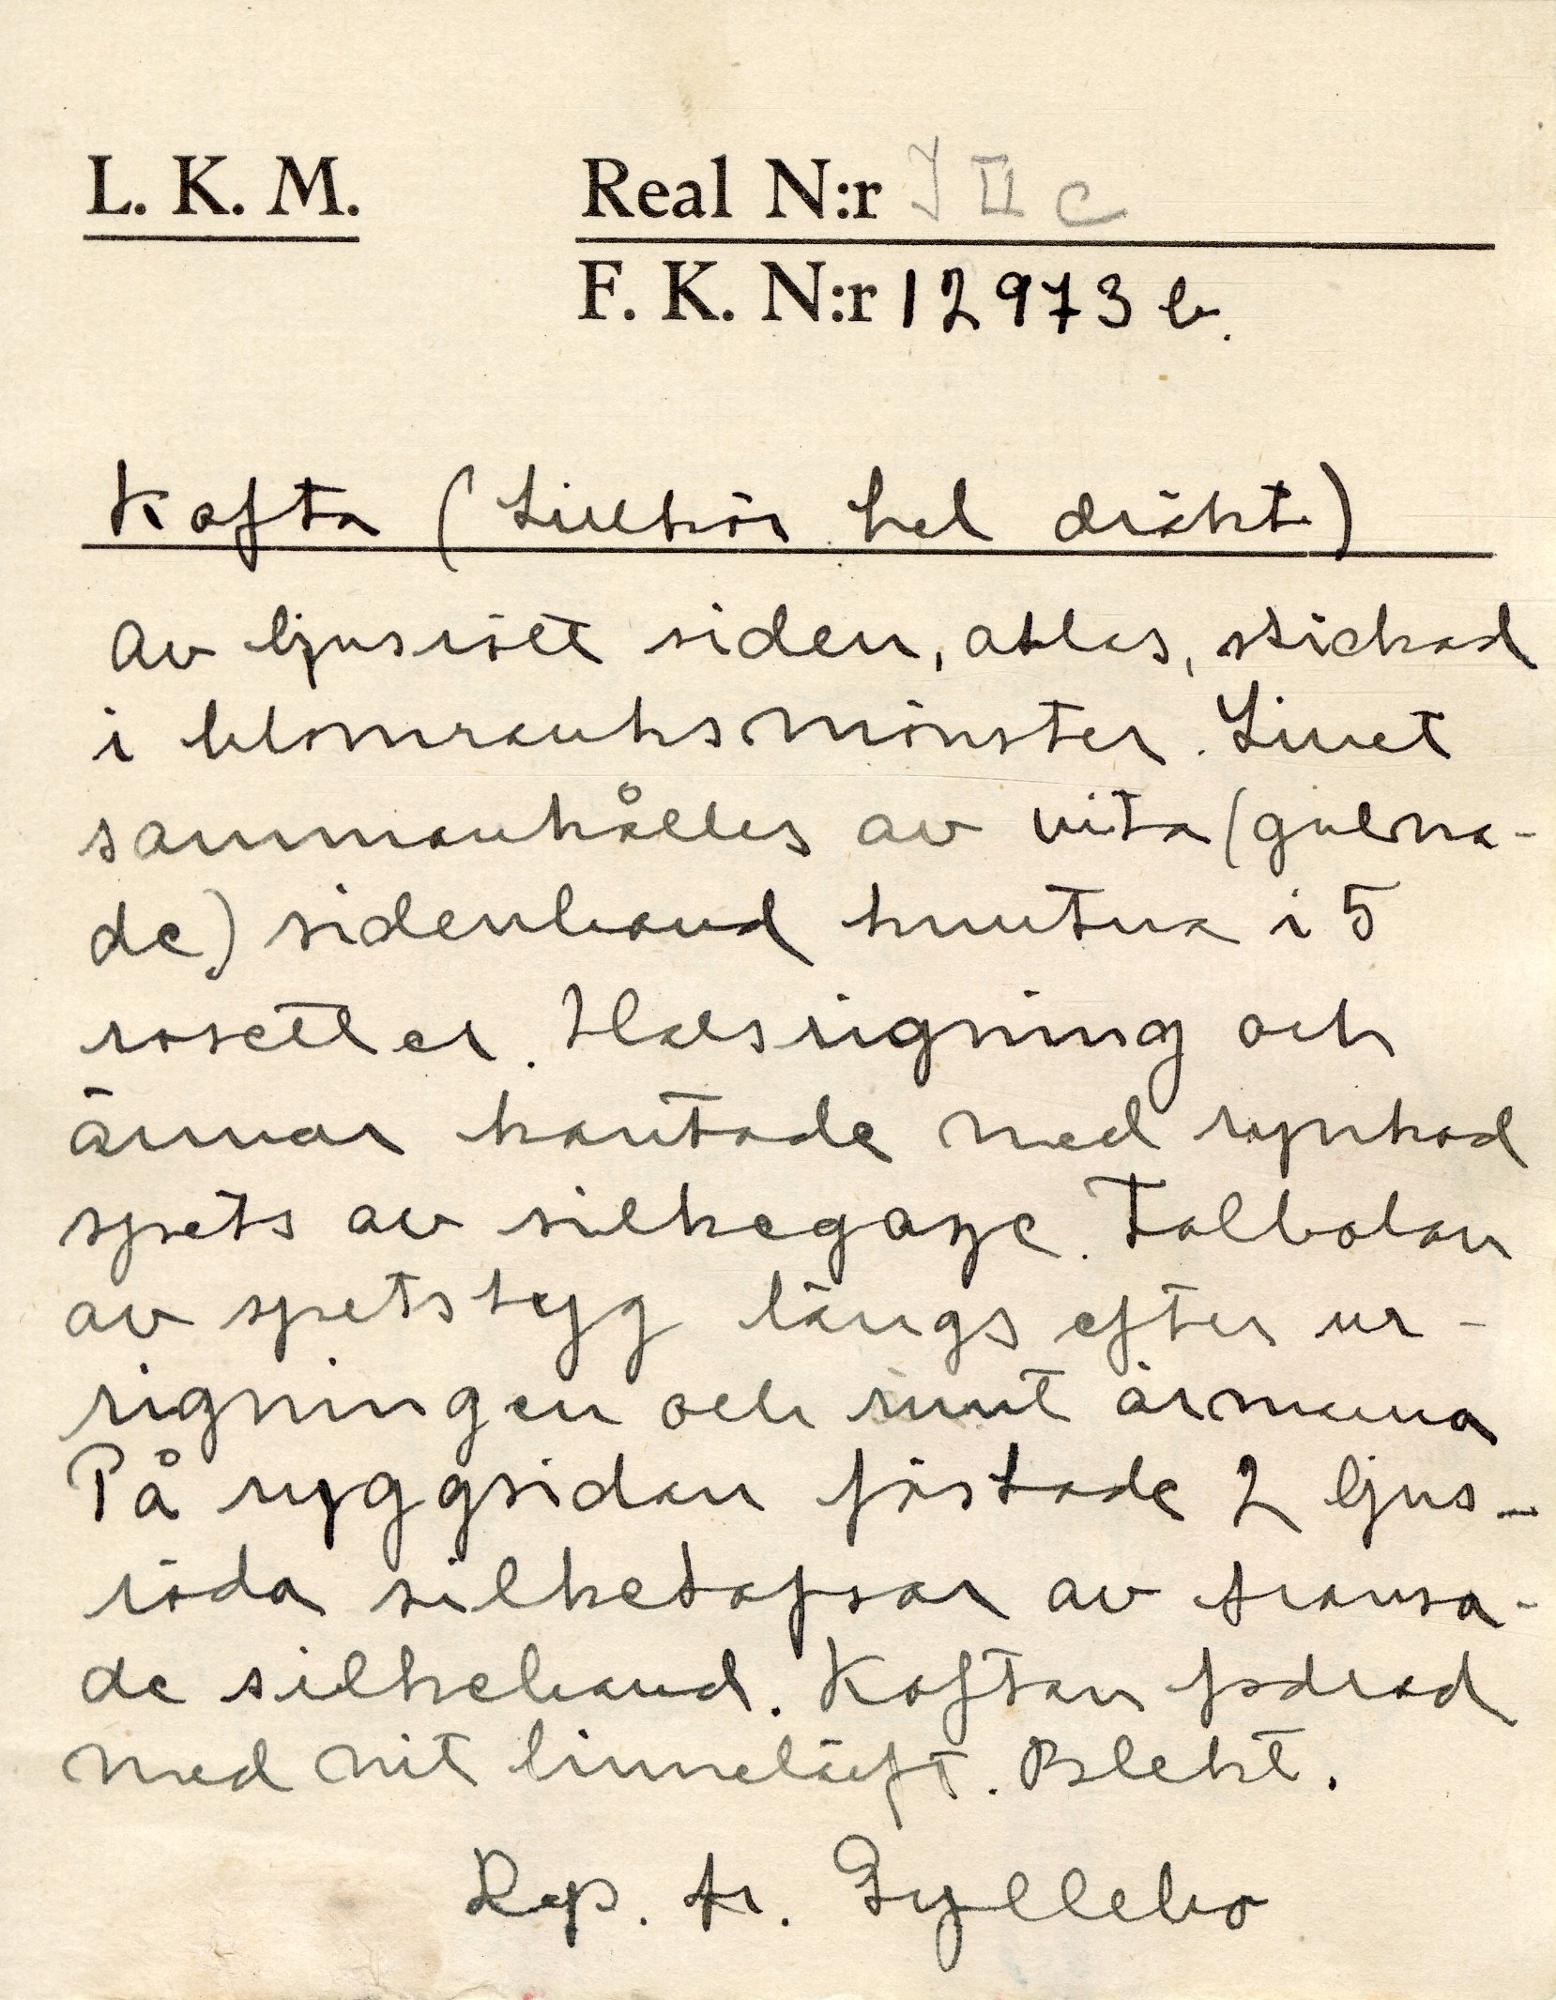 L. K. M.
Real N:r I II c
F. K. N:r 12973 b.
Kofta (Tillhör hel dräkt)
Av ljusrött siden, atlas, stickad
i blomranksmönster. Livet
sammanhålles av vita (gulna-
de) sidenband knutna i 5
rosetter. Halsrigning och
ärmar kantade med rynkad
spets av silkegaze. Falbolan
av spetstyg längs efter ur-
rigningen och runt ärmarna
På ryggsidan fästade 2 ljus-
röda silketofsar av fransa-
de silkeband. Koftan fodrad
med vit linnelärft. Blekt.
Rep. fr. Gyllebo